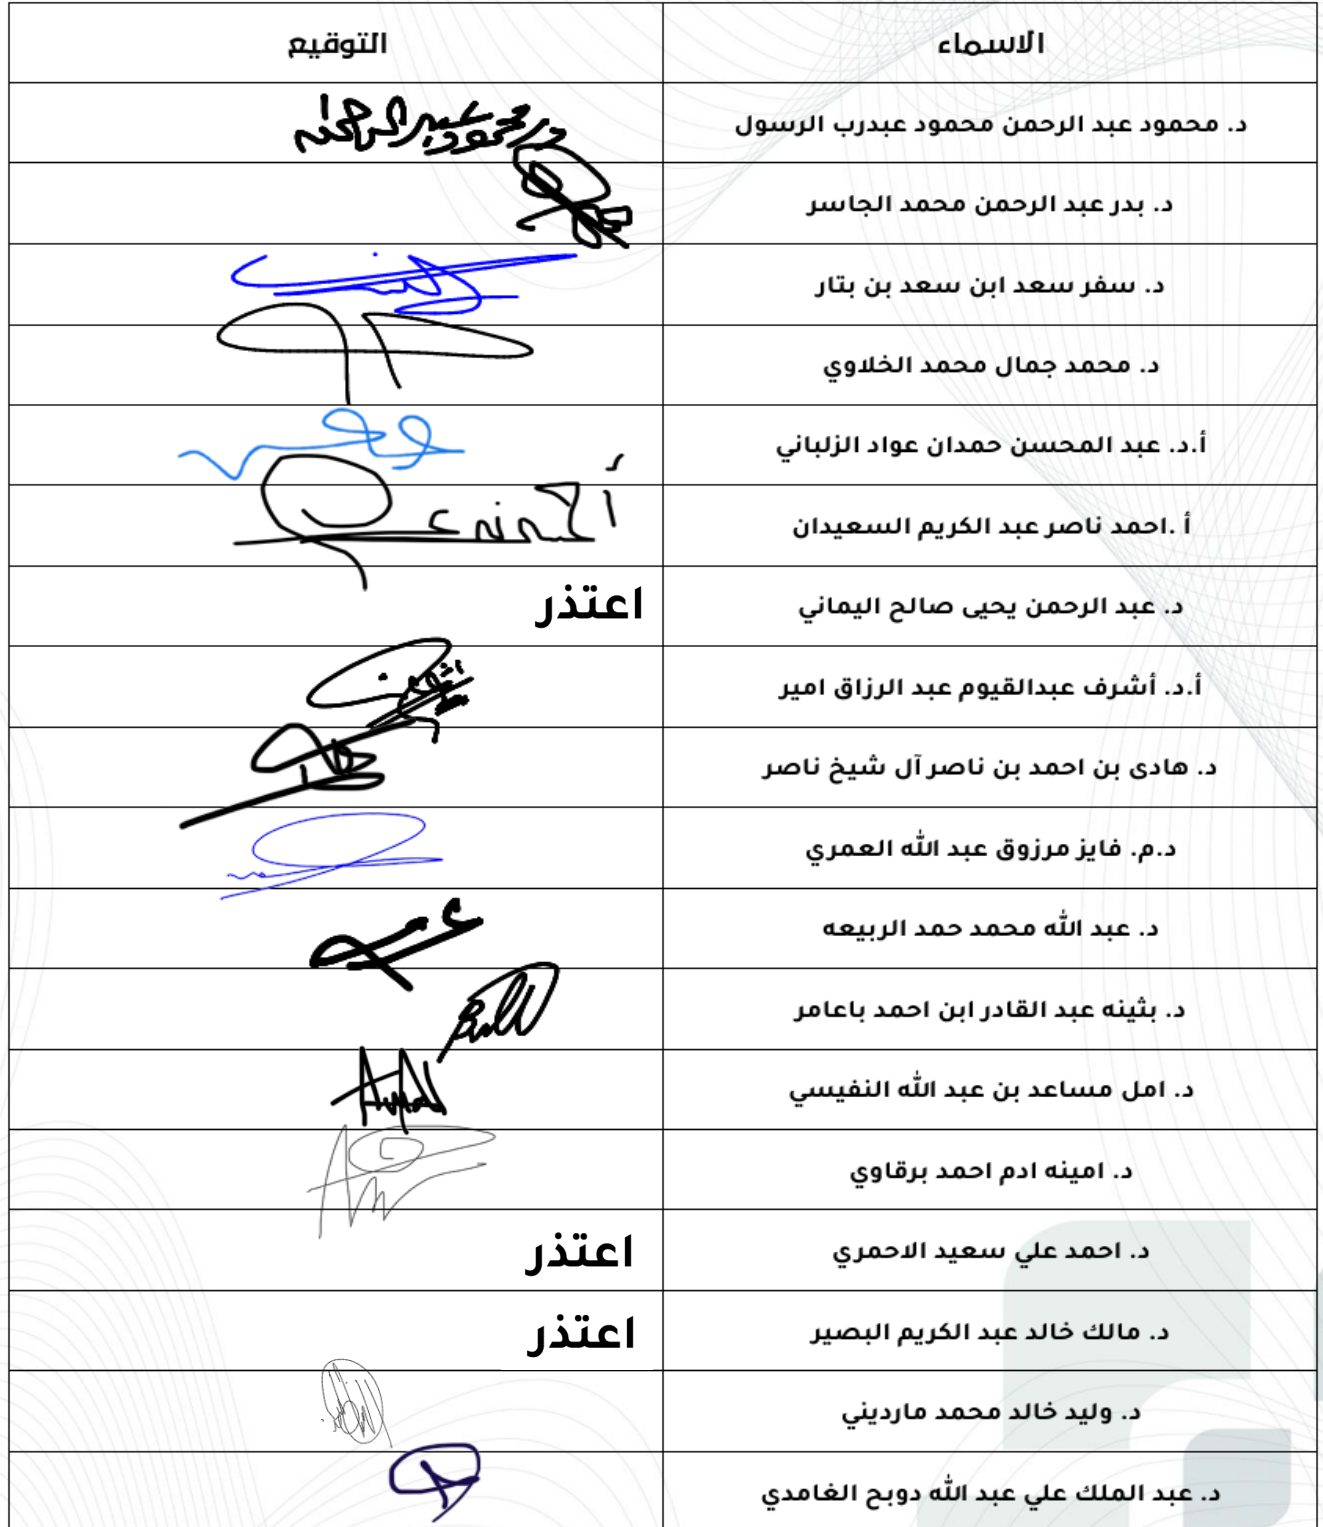 الاسماء التوقيع
د. محمود عبد الرحمن محمود عبدرب الرسول د/محمود عبد الرحمن
د. بدر عبد الرحمن محمد الجاسر
د. سفر سعد ابن سعد بن بتار
د. محمد جمال محمد الخلاوي
أ.د. عبد المحسن حمدان عواد الزلباني
أ .احمد ناصر عبد الكريم السعيدان
د. عبد الرحمن يحيى صالح اليماني اعتذر
أ.د. أشرف عبدالقيوم عبد الرزاق امير
د. هادى بن احمد بن ناصر آل شيخ ناصر
د.م. فايز مرزوق عبد الله العمري
د. عبد الله محمد حمد الربيعه
د. بثينه عبد القادر ابن احمد باعامر
د. امل مساعد بن عبد الله النفيسي
د. امينه ادم احمد برقاوي
د. احمد علي سعيد الاحمري اعتذر
د. مالك خالد عبد الكريم البصير اعتذر
د. وليد خالد محمد مارديني
د. عبد الملك علي عبد الله دوبح الغامدي